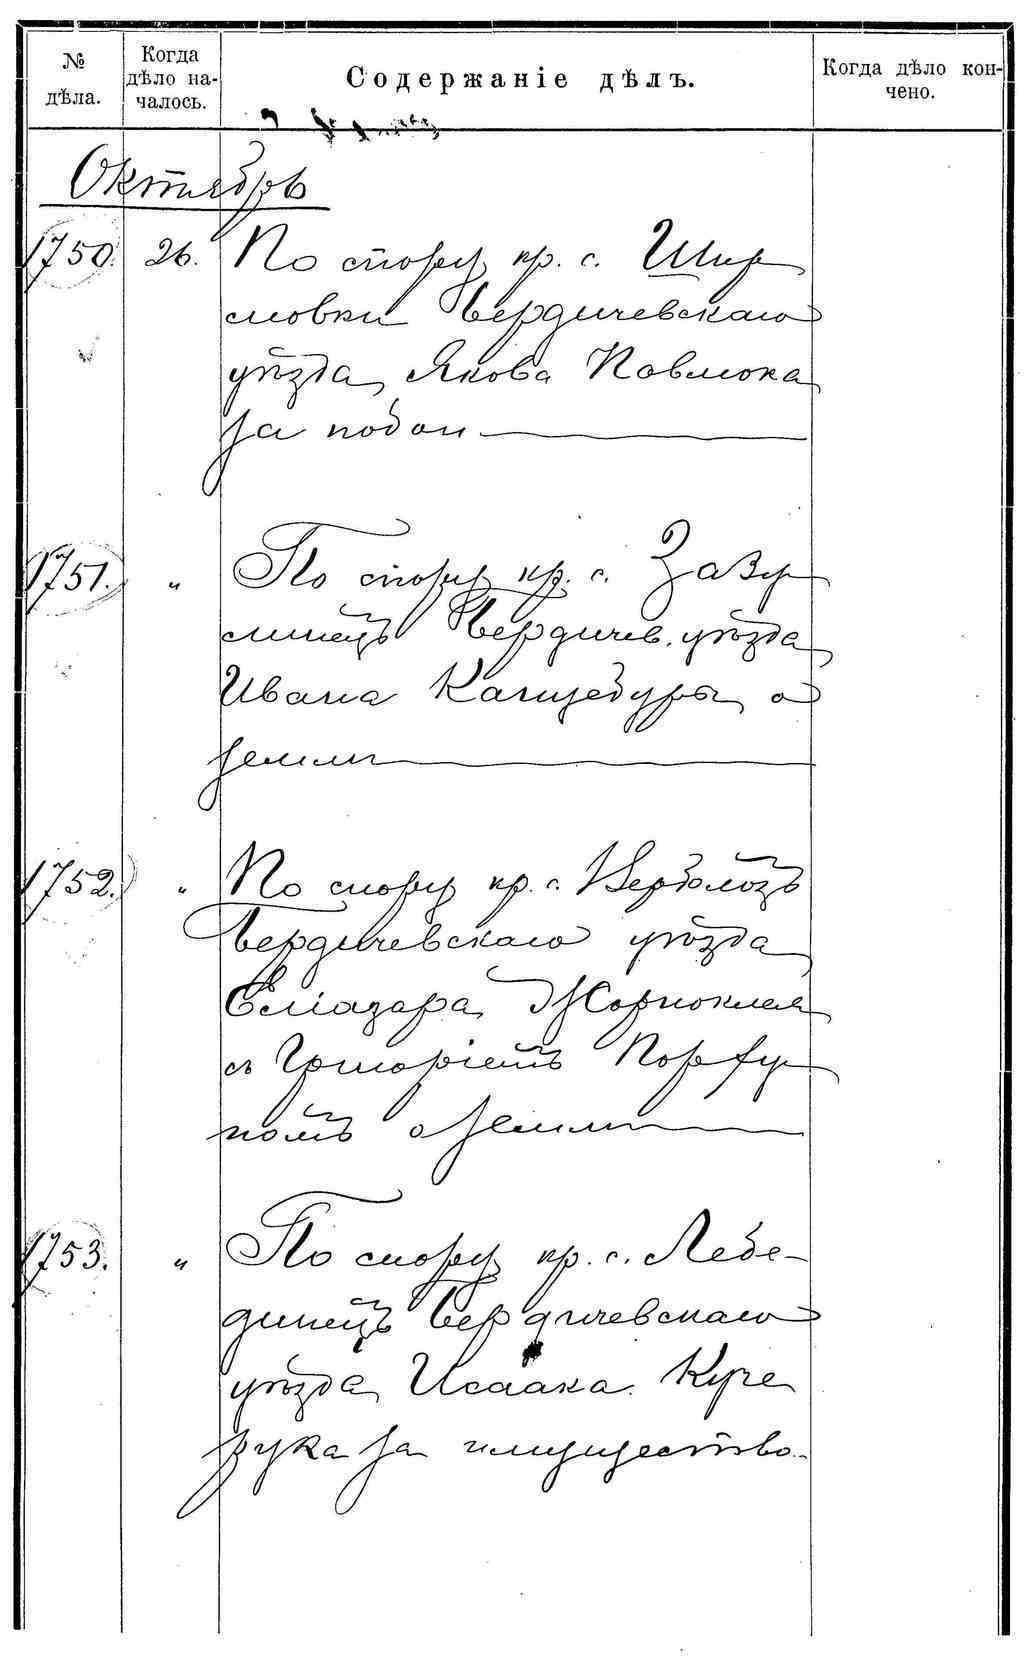 № дѣла.
Когда дѣло началось.
Содержаніе дѣлъ.
Когда дѣло кончено.
Октябрь
1750. 26. По спору кр. с. Шир
мовки Бердичевскаго
уѣзда Якова Павлюка
за побои
1751. " По спору кр. с. Зазу
линецъ Бердичев. уѣзда
Ивана Канцебуры о
землѣ
1752. " По спору кр. с. Верболозъ
Бердичевскаго уѣзда
Еліазара Жорноклея
съ Григоріемъ Порфу
номъ о землѣ
1753. " По спору кр. с. Лебе-
динецъ Бердичевскаго
уѣзда Исаака Куче
рука за имущество.